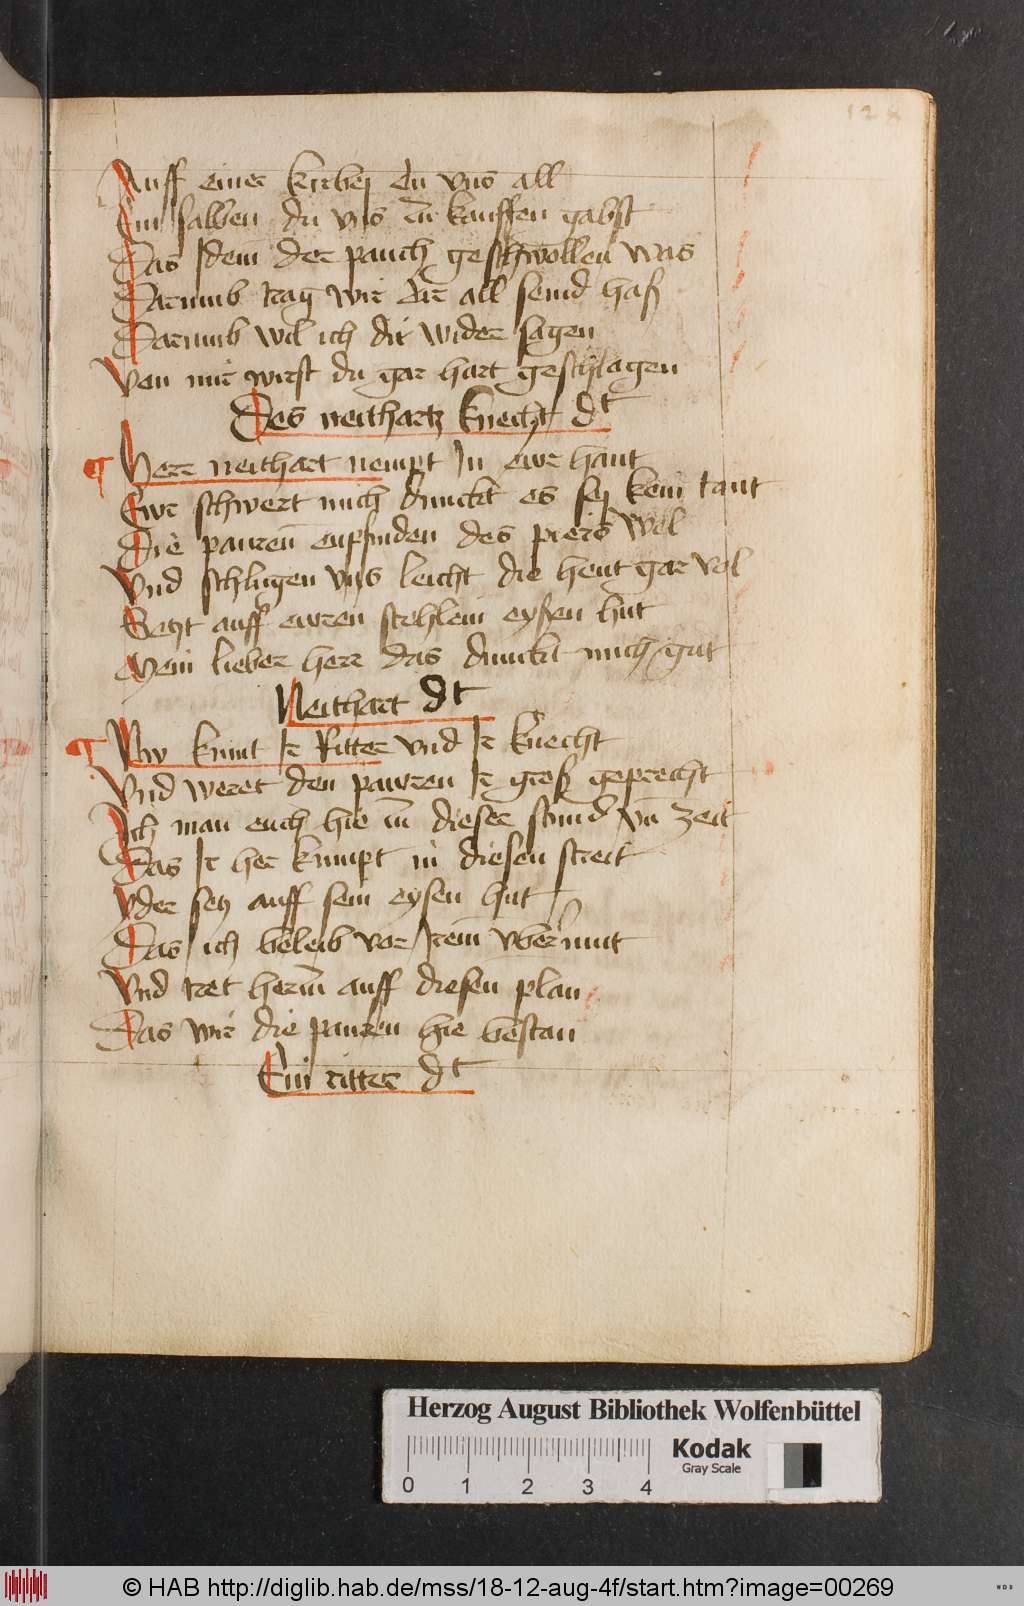 128
Auff einer kirbej du vns all
Ein salben du vns zu kauffen gabst
Das Idem der pauch geschwollen was
Darumb trag wir dir all semd haß
Darumb wil ich dir wider sagen
Von mir wirst du gar hart geschlagen
Des neithartz knecht dt
Herr neithart nempt In ewr hant
Ewr schwert mich dunckt es sej kein tant
Die pauren enpfinden des pieis wol
Vnd schlugen vns leicht die heut gar vol
Setzt auff ewren stehlein eysen hut
Mein lieber herr das dunckt mich gut
Neithart dt
Nw kumt Ir Ritter vnd Ir knecht
Vnd weret den pawren Ir groß geprecht
Ich man euch hie in dieser stund vn zeit
Das Ir her kumpt in diesen streit
Yder setz auff sein eysen hut
Das ich beleib vor Irem vbermut
Vnd tret herin auff diesen plan
Das wir die pauren hie bestan
Ein ritter dt
Herzog August Bibliothek Wolfenbüttel
Kodak
Gray Scale
0 1 2 3 4
© HAB http://diglib.hab.de/mss/18-12-aug-4f/start.htm?image=00269